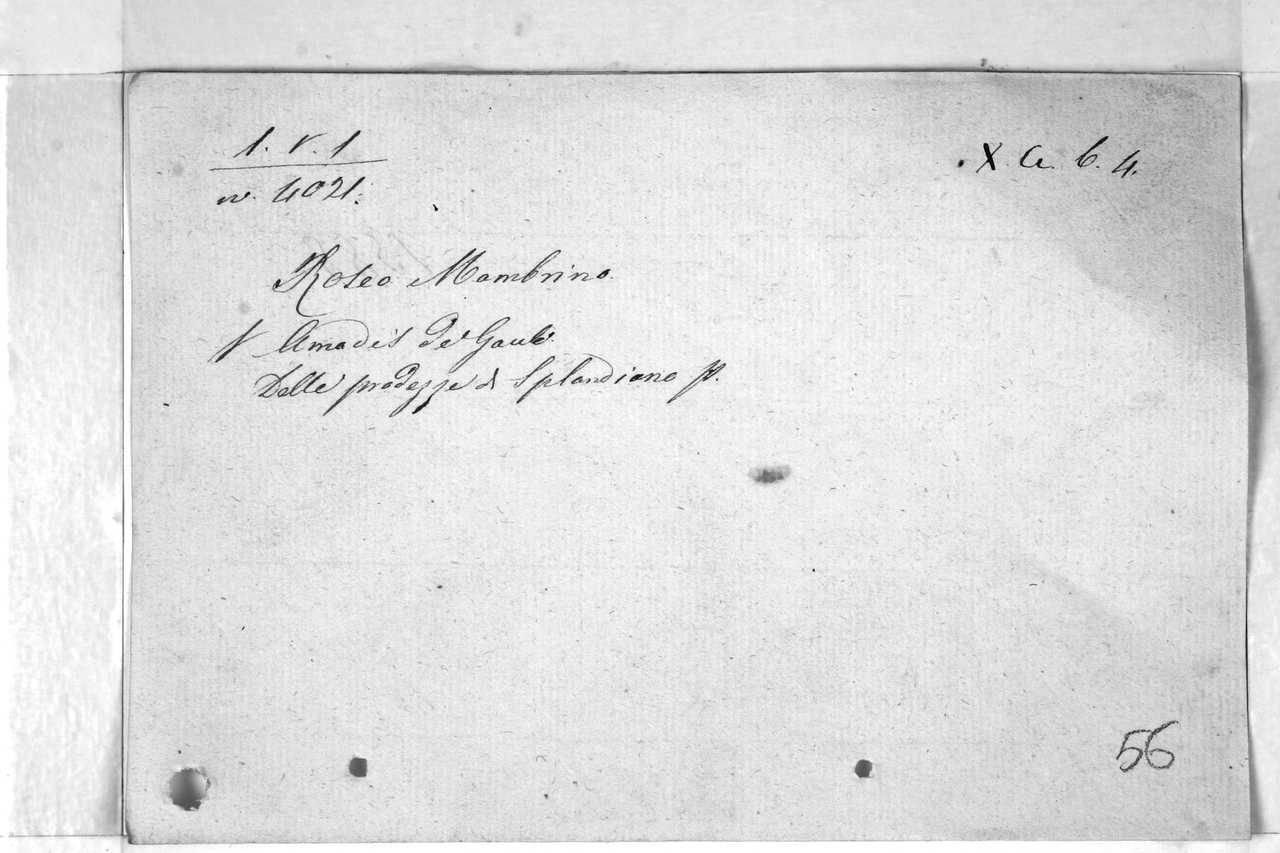 1. V. 1
n. 4021.
X. a. b. 4.
Roseo Mambrino.
Amadis de Gaule
Delle prodezze di Splandiano p.
56